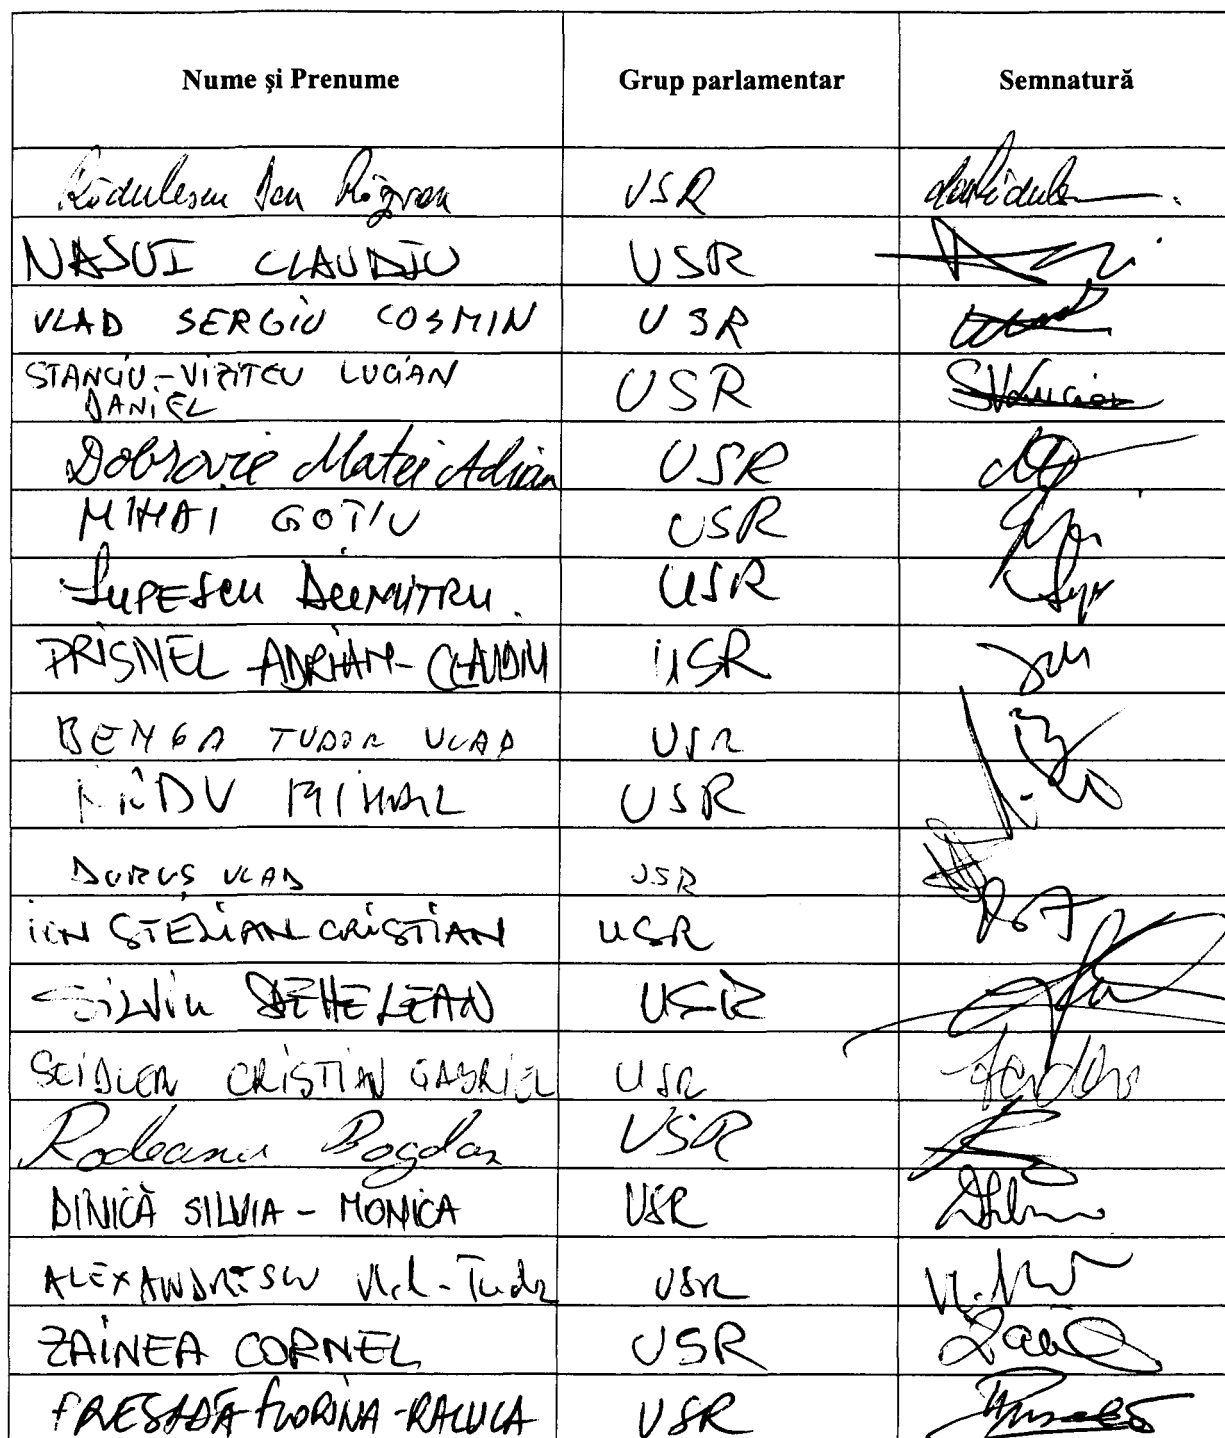 Nume și Prenume Grup parlamentar Semnatură
Rădulescu Dan Răzvan USR
NASUI CLAUDIU USR
VLAD SERGIU COSMIN USR
STANCIU-VIZITEU LUCIAN USR
DANIEL
Dobrovie Matei Adrian USR
MIHAI GOȚIU USR
LUPESCU DUMITRU. USR
PRISNEL ADRIAN-CLAUDIU USR
BENGA TUDOR VLAD USR
MIHAIL USR
DURUȘ VLAD USR
ION STELIAN CRISTIAN USR
SILVIU DEHELEAN USR
SEIDLER CRISTIAN GABRIEL USR
Rodeanu Bogdan USR
DINICĂ SILVIA - MONICA USR
ALEXANDRESCU Vlad-Tudor USR
ZAINEA CORNEL USR
PRESADĂ FLORINA-RALUCA USR